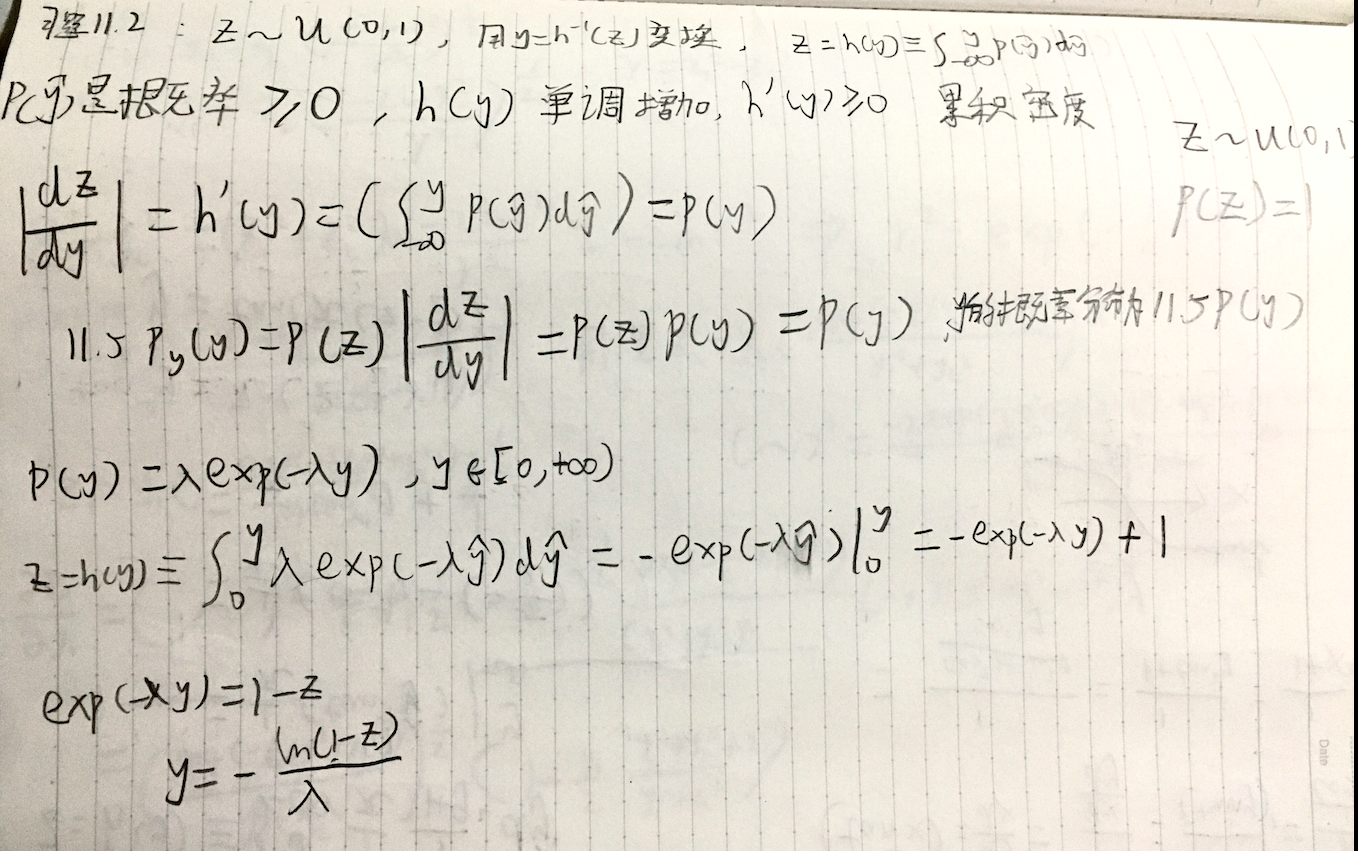 习题11.2 : z ~ U(0,1), 用y=h⁻¹(z)变换, z=h(y)≡∫_{-∞}^{y} p(ŷ)dŷ
P(ŷ)是概率 ≥0 , h(y) 单调增加, h'(y)≥0 累积密度
z~U(0,1)
|dz/dy| = h'(y) = (∫_{-∞}^{y} p(ŷ)dŷ) = p(y)
p(z)=1
11.5 p_y(y)=p(z)|dz/dy| = p(z)p(y) = p(y) , 概率分布为11.5 p(y)
p(y)=λexp(-λy) , y∈[0,+∞)
z=h(y)≡∫_0^y λ exp(-λŷ)dŷ = -exp(-λŷ)|_0^y = -exp(-λy)+1
exp(-λy)=1-z
y= - ln(1-z)/λ
Date